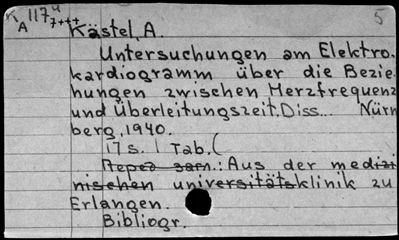 K 117 4
A 7+++
5
Kästel, A.
Untersuchungen am Elektro-
kardiogramm über die Bezie-
hungen zwischen Herzfrequenz
und Überleitungszeit. Diss... Nürn
berg, 1940.
17 s. 1 Tab. (
Aus der medizi
nischen universitätsklinik zu
Erlangen.
Bibliogr.